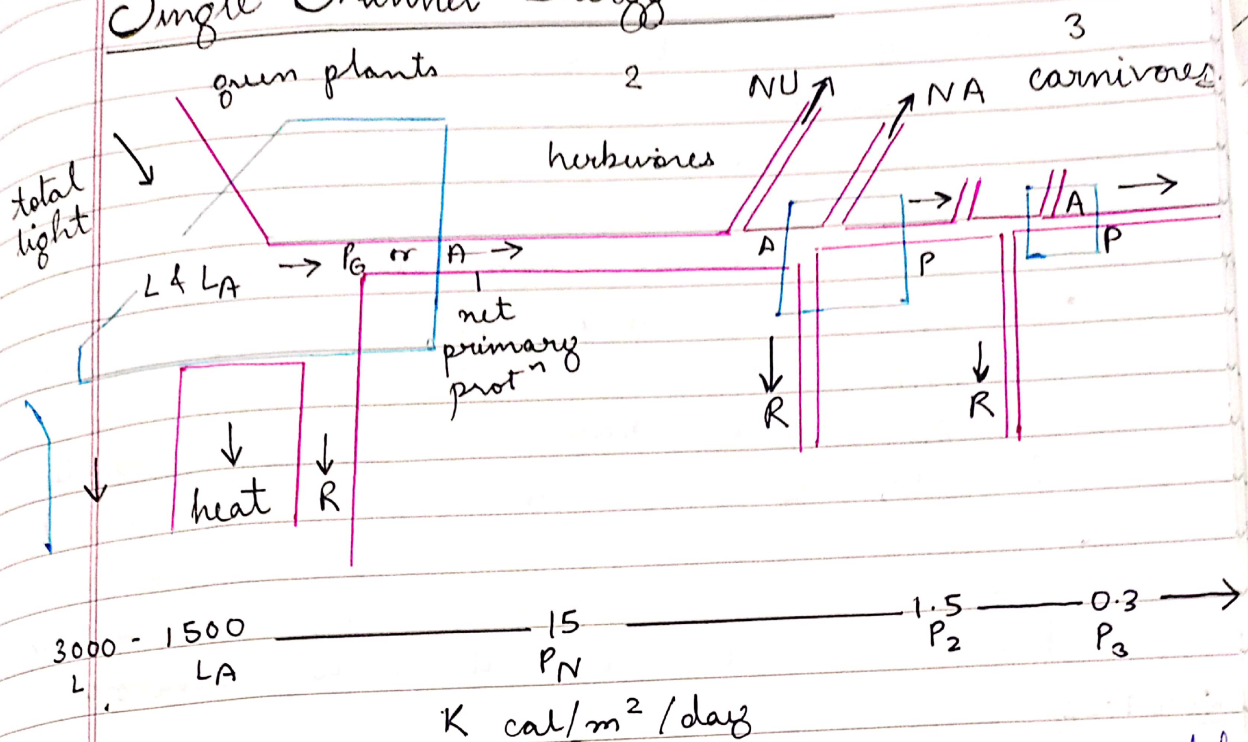 Single Channel
3
green plants
2
NU
NA
carnivores
herbivores
total
light
A
A
P
P
L & LA → PG or A →
net
primary
protⁿ
heat
R
R
R
3000 - 1500 — 15 — 1.5 — 0.3 →
L
LA
PN
P2
P3
K cal/m² /day